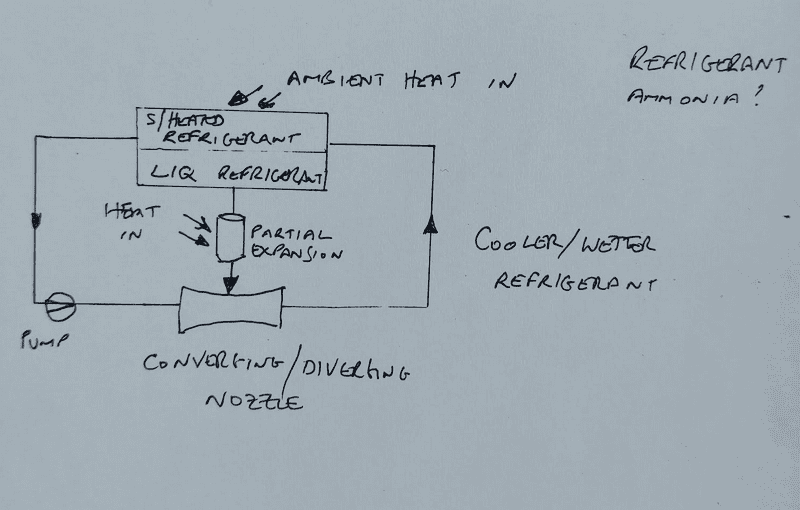 REFRIGERANT
AMMONIA?
AMBIENT HEAT IN
S/HEATED
REFRIGERANT
LIQ REFRIGERANT
HEAT
IN
PARTIAL
EXPANSION
COOLER/WETTER
REFRIGERANT
PUMP
CONVERGING/DIVERGING
NOZZLE